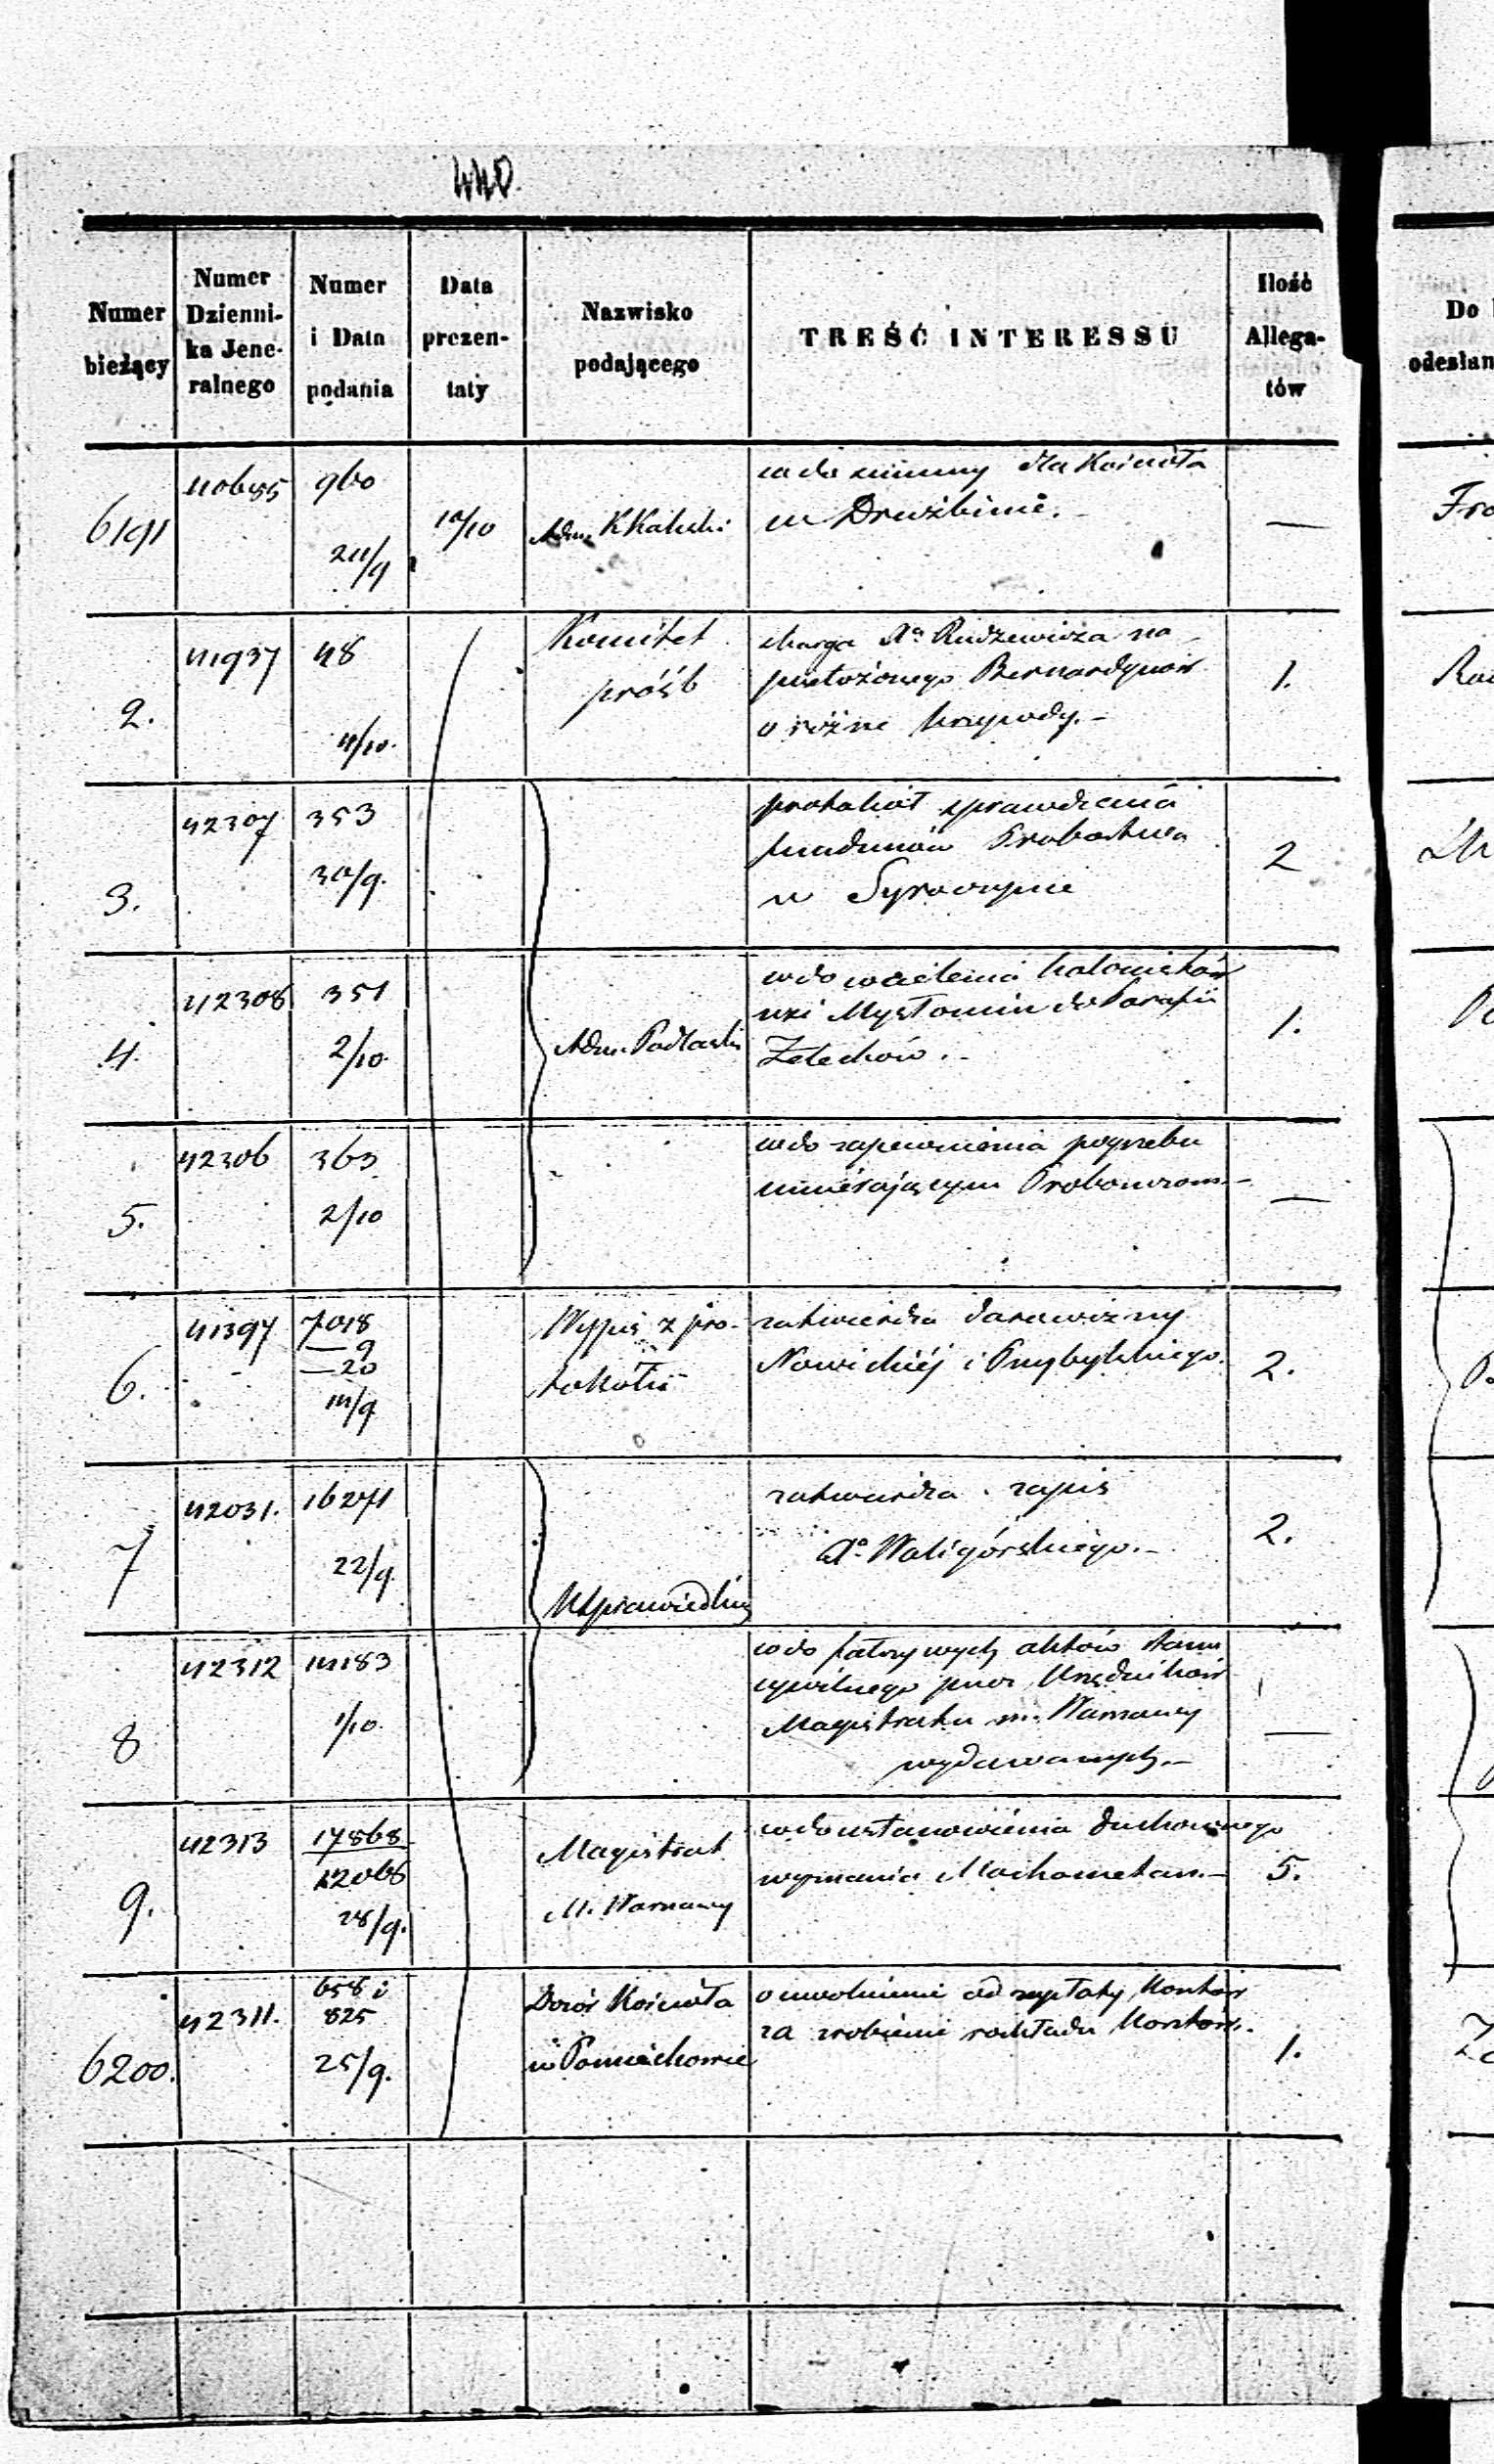 440.
Numer bieżący
Numer Dzienni-ka Jene-ralnego
Numer i Data podania
Data prezen-taty
Nazwisko podającego
TREŚĆ INTERESSU
Ilość Allega-tów
Do
odesłan
6191
40685
960
24/9
10/10
Adm. KKaliski
wdo summy dla Kościoła
w Drużbinie.
—
2.
41937
48
4/10.
Komitet
próśb
skarga Xa Rudzewicza na
przełożonego Bernardynów
o różne krzywdy.—
1.
3.
42307
353
30/9.
protokół sprawdzenia
funduszów Probostwa
w Syroczynie
2
4.
42308
351
2/10.
Adm. Podlaski
wdo wcielenia katolików
wsi Mysłomin do Parafii
Żelechów.—
1.
5.
42306
363
2/10
wdo zapewnienia pogrzebu
umierającym Proboszczom.—
—
6.
41397
7018
— 9
— 20
14/9
Wypis z pro-
tokółu
zatwierdza darowizny
Nowickiéj i Przybylskiego.
2.
7
42031.
16271
22/9.
KSprawiedliw
zatwierdza zapis
Xa Waligórskiego.—
2.
8
42312
14183
1/10.
wdo fałszywych aktów stanu
cywilnego przez Urzędników
Magistratu m. Warszawy
wydawanych.—
—
9.
42313
17868
12068
28/9.
Magistrat
M. Warszawy
wdo ustanowienia duchownego
wyznania Mochometan.—
5.
6200.
42311.
658 i
825
25/9.
Dozór Kościoła
w Pomiechowie
o uwolnienie od zapłaty kosztów
za zrobienie rozkładu kosztów.
1.